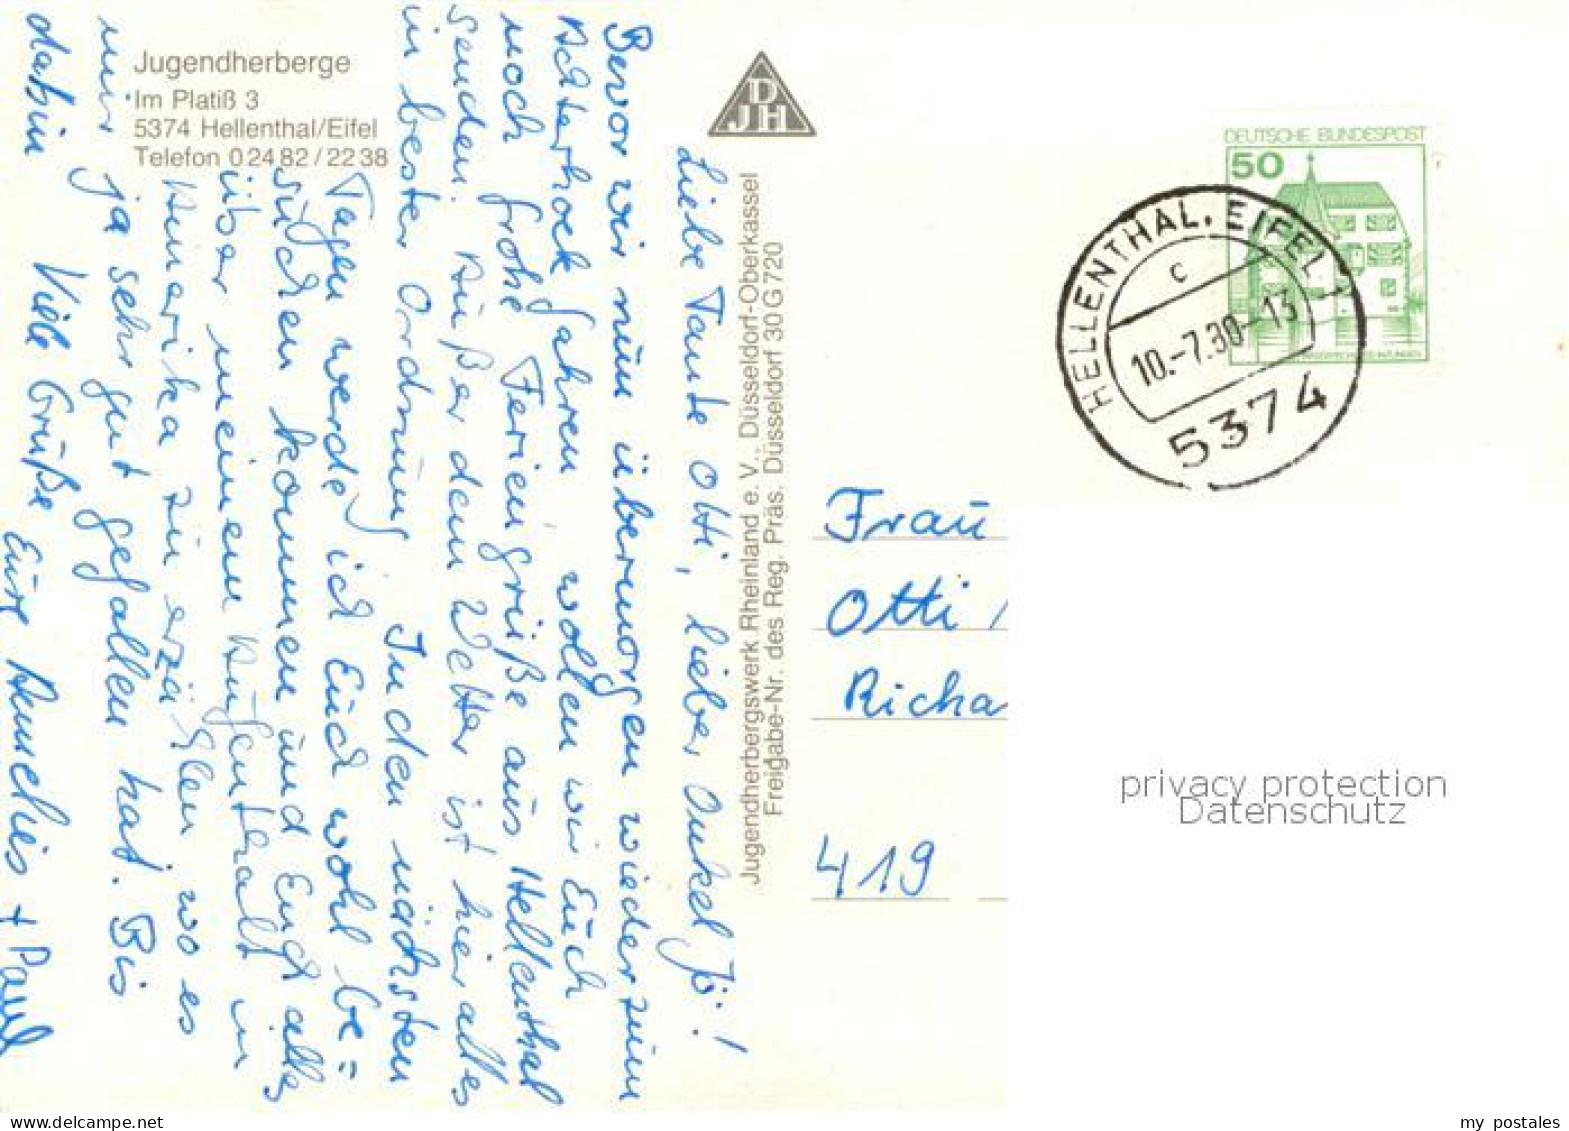 Jugendherberge
Im Platiß 3
5374 Hellenthal/Eifel
Telefon 02482/2238
DJH
Jugendherbergswerk Rheinland e. V., Düsseldorf-Oberkassel
Freigabe-Nr. des Reg. Präs. Düsseldorf 30 G 720
Liebe Tante Otti, lieber Onkel Jö!
Bevor wir nun übermorgen wieder zum
Achterhoek fahren wollen wir Euch
noch frohe Feriengrüße aus Hellenthal
senden. Außer dem Wetter ist hier alles
in bester Ordnung. In den nächsten
Tagen werde ich Euch wohl be=
suchen kommen und Euch alles
über meinen Aufenthalt in
Amerika zu erzählen, wo es
mir ja sehr gut gefallen hat. Bis
dahin Viele Grüße Eure Annelies + Paul
DEUTSCHE BUNDESPOST
50
HELLENTHAL, EIFEL 1
c
10.-7.80-13
5374
Frau
Otti
Richa
419
privacy protection
Datenschutz
my postales